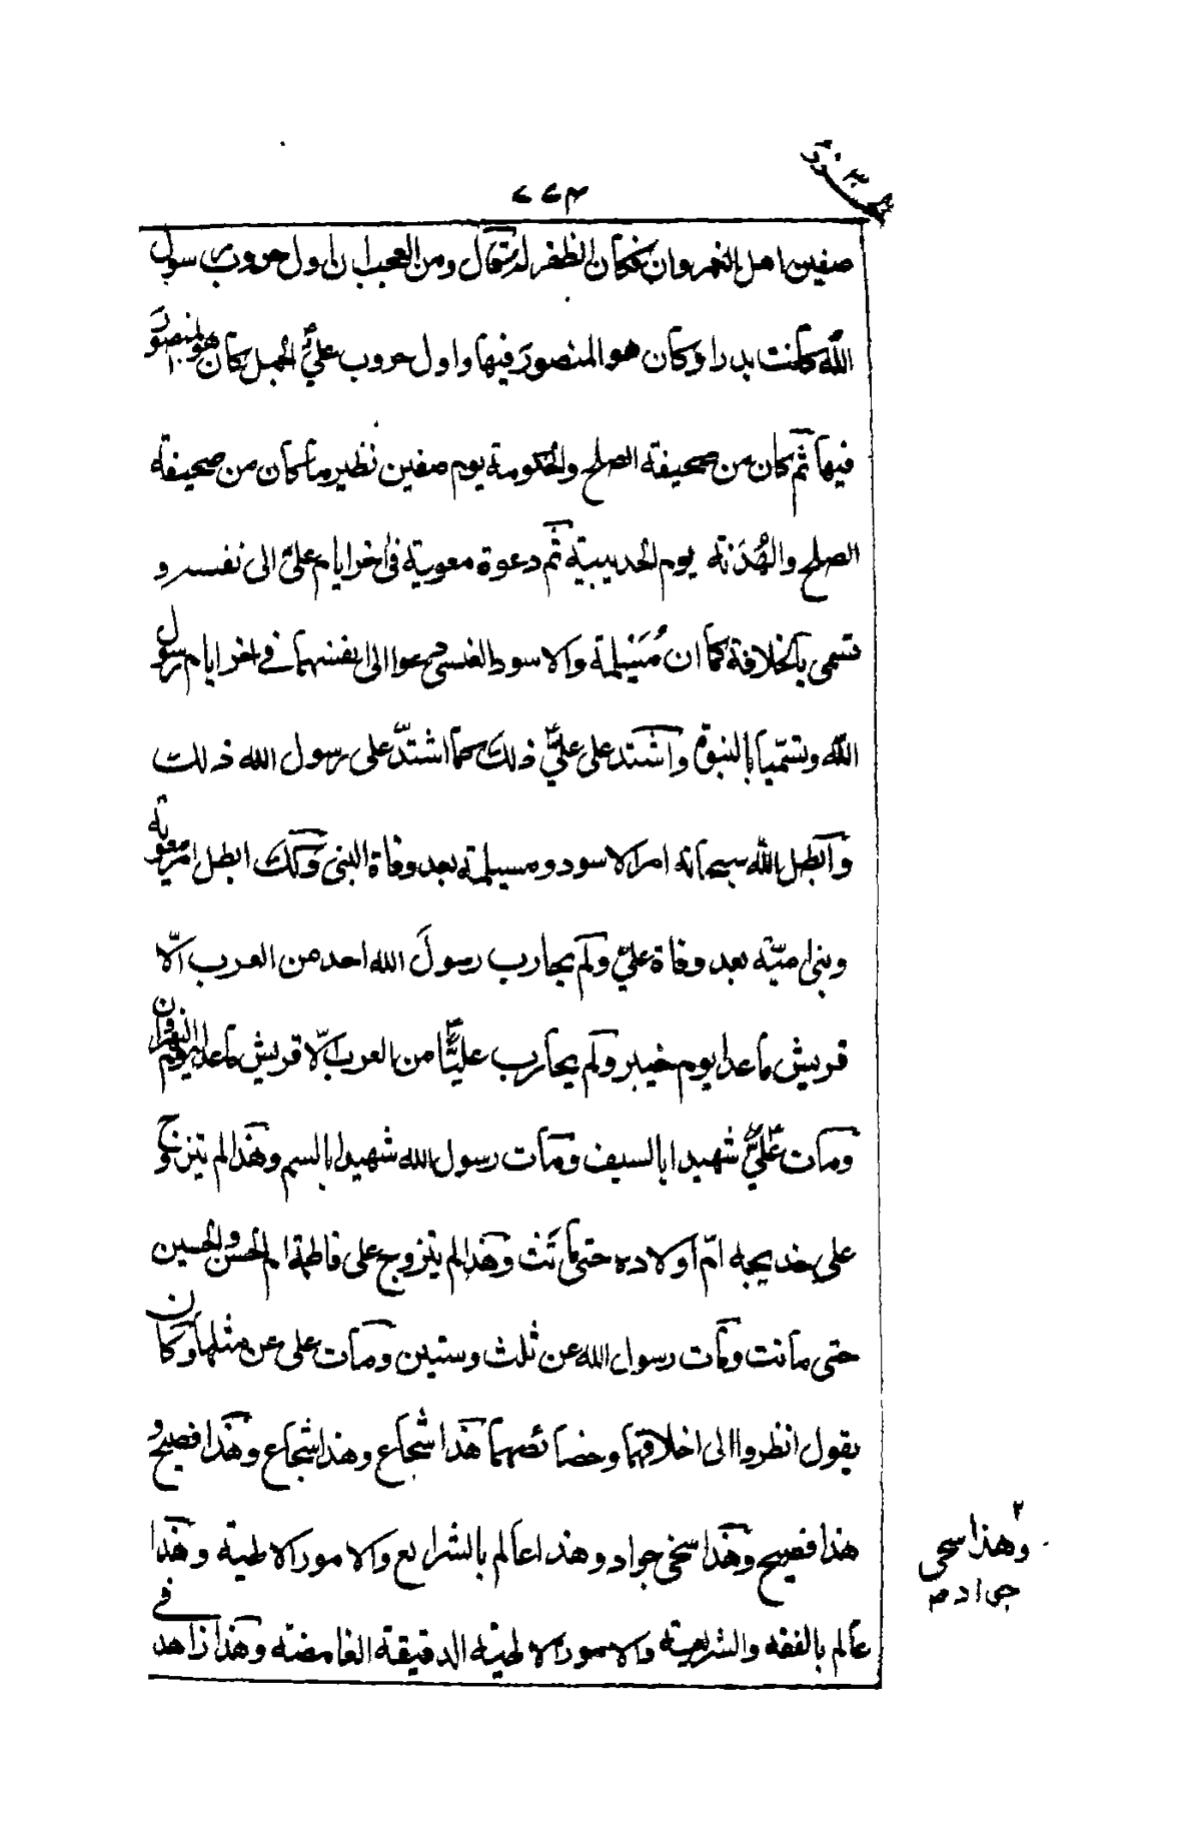 ٧٧٣
صفين اهل النهروان فكان الظفر له وقال ومن العجب ان اول حروب رسول
الله كانت بدرا وكان هو المنصور فيها واول حروب علي الجمل كان هو المنصور
فيها ثم كان من صحيفة الصلح والحكومة يوم صفين نظير ما كان من صحيفة
الصلح والهُدَنة يوم الحديبية ثم دعوة معوية في اخر ايام علي الى نفسه و
تسمى بالخلافة كما ان مُسَيلمة والاسود العنسي دعوا الى انفسهما في اخر ايام رسول
الله وتسمّيا بالنبوة واشتد على عليّ ذلك كما اشتدّ على رسول الله ذلك
وابطل الله سبحانه امر الاسود ومسيلمة بعد وفاة النبي وكك ابطل امر معوية
وبني اميّة بعد وفاة علي ولم يحارب رسولَ الله احد من العرب الّا
قريش ما عدا يوم خيبر ولم يحارب عليًّا من العرب الّا قريش ما عدا يوم النهروان
ومات عليّ شهيدا بالسيف ومات رسول الله شهيدا بالسم وهذا لم يتزوج
على خديجة امّ اولاده حتى ماتَت وهذا لم يتزوج على فاطمة ام الحسن والحسين
حتى ماتت ومات رسول الله عن ثلث وستين ومات علي عن مثلها وكان
يقول انظروا الى اخلاقهما وخصائصهما هذا شجاع وهذا شجاع وهذا فصيح و
هذا فصيح وهذا سخي جواد وهذا عالم بالشرايع والامور الالهية وهذا
عالم بالفقه والشريعة والامور الالهية الدقيقة الغامضة وهذا زاهد في
٢
وهذا سخي
جواد صح